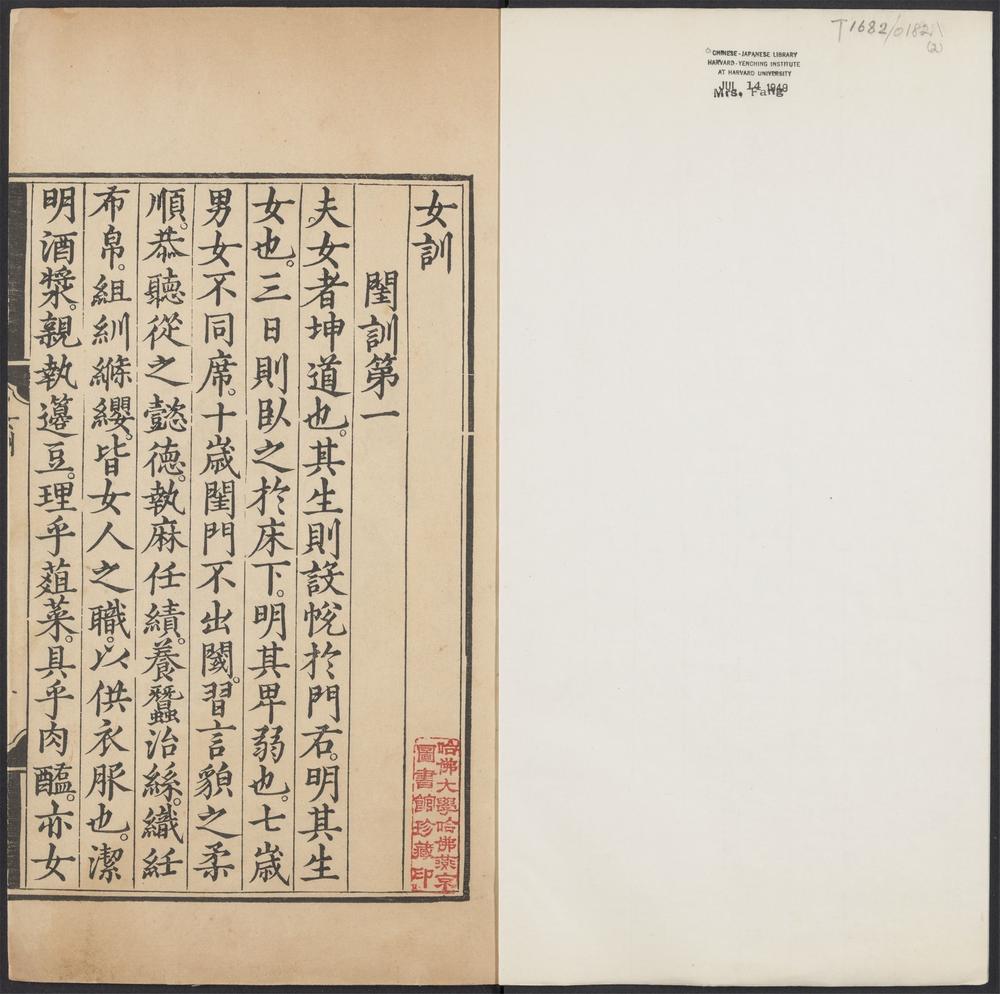 T1682/0182
(2)
CHINESE-JAPANESE LIBRARY
HARVARD-YENCHING INSTITUTE
AT HARVARD UNIVERSITY
JUL 14 1940
Mrs. Fang
女訓
閨訓第一
夫女者坤道也。其生則設帨於門右。明其生
女也。三日則臥之於床下。明其卑弱也。七歲
男女不同席。十歲閨門不出閾。習言貌之柔
順。恭聽從之懿德。執麻任績。養蠶治絲。織紝
布帛。組紃絛纓。皆女人之職。以供衣服也。潔
明酒漿。親執籩豆。理乎葅菜。具乎肉醢。亦女
哈佛大學哈佛燕京
圖書館珍藏印